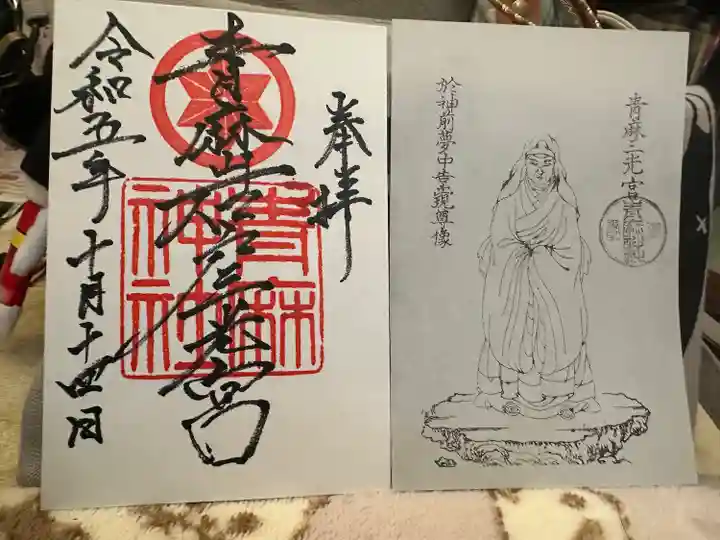 奉拝
青麻三光宮
青麻神社
令和五年十月十四日
青麻三光宮
青麻神社
於神前夢中告示現尊像